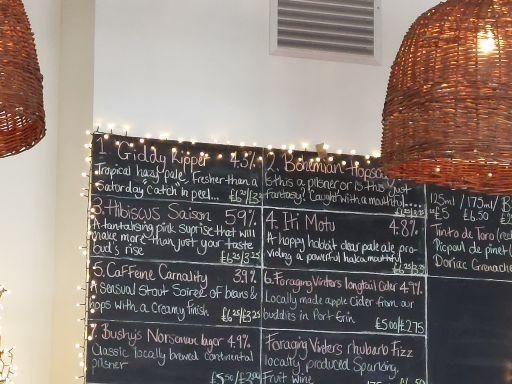 1 Giddy Kipper 4.3%
Tropical hazy pale. Fresher than a
Saturday "catch" in peel... £6.25/3.25
2. Bohemian Hopsody
Is this a pilsner or is this just
fantasy? Caught with a mouthful....
£6.25/3.25
3. Hibiscus Saison 5.9%
A tantalising pink suprise that will
make more than just your taste
bud's rise £6.25/3.25
4. Iti Motu 4.8%
A hoppy habitat clear pale ale pro-
viding a powerful haka mouthful
£6.25/3.25
5. Caffeine Carnality 3.9%
A sensual stout Soiree of beans &
hops with a Creamy finish £6.25/£3.25
6. Foraging Vintners longtail Cider 4.9%
Locally made apple Cider from our
buddies in Port Erin
£5.00/£2.75
7. Bushy's Norseman lager 4.9%
Classic locally brewed continental
pilsner
£5.50/£3.00
Foraging Vintners rhubarb Fizz
locally produced Sparkling,
Fruit Wine
125ml / 175ml / B
£5 / £6.50 £25
Tinto de Toro (red
Picpoul de pinet (
Doriac Grenache